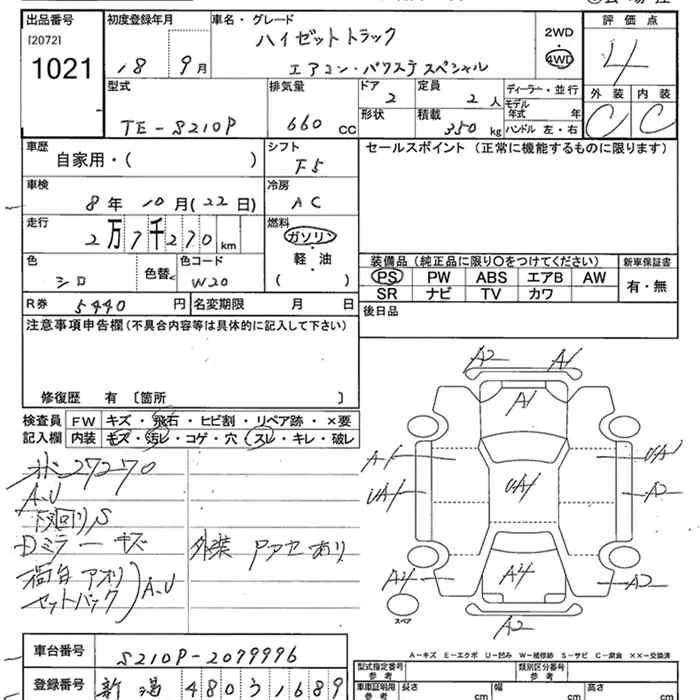 出品番号 初度登録年月 車名・グレード 評価点
[2072]
1021
18 9月
ハイゼットトラック
エアコン・パワステスペシャル
2WD
4WD
4
外装 内装
C C
型式 排気量 ドア 定員 ディーラー・並行
TE-S210P 660 CC 2 2人
形状 積載 350kg モデル年式 年
ハンドル 左・右
車歴 シフト セールスポイント (正常に機能するものに限ります)
自家用・( ) F5
車検 冷房
8年10月(22日) AC
走行 燃料
2万7千270km
ガソリン・軽油
( )
色 色替 色コード
シロ W20
R券 5440円 名変期限 月 日
装備品 (純正品に限り○をつけてください) 新車保証書
PS PW ABS エアB AW
SR ナビ TV カワ
有・無
後日品
注意事項申告欄 (不具合内容等は具体的に記入して下さい)
修復歴 有 〔箇所 〕
検査員記入欄
FW キズ・飛石・ヒビ割・リペア跡・×要
内装 キズ・汚レ・コゲ・穴・スレ・キレ・破レ
27270
A、U
下回りS
Dミラーキズ 外装Pアセあり
荷台アオリ
セットバック A、U
A2 A1
A1
A1 UA1
UA1 UA1 A2
A4 A4 A2
A2
スペア
A-キズ E-エクボ U-凹み W-補修跡 S-サビ C-腐食 ××-交換済
車台番号 S210P-2079996
登録番号 新潟 480う1689
型式指定番号 類別区分番号
車車証明用参考 長さ cm 幅 cm 高さ cm